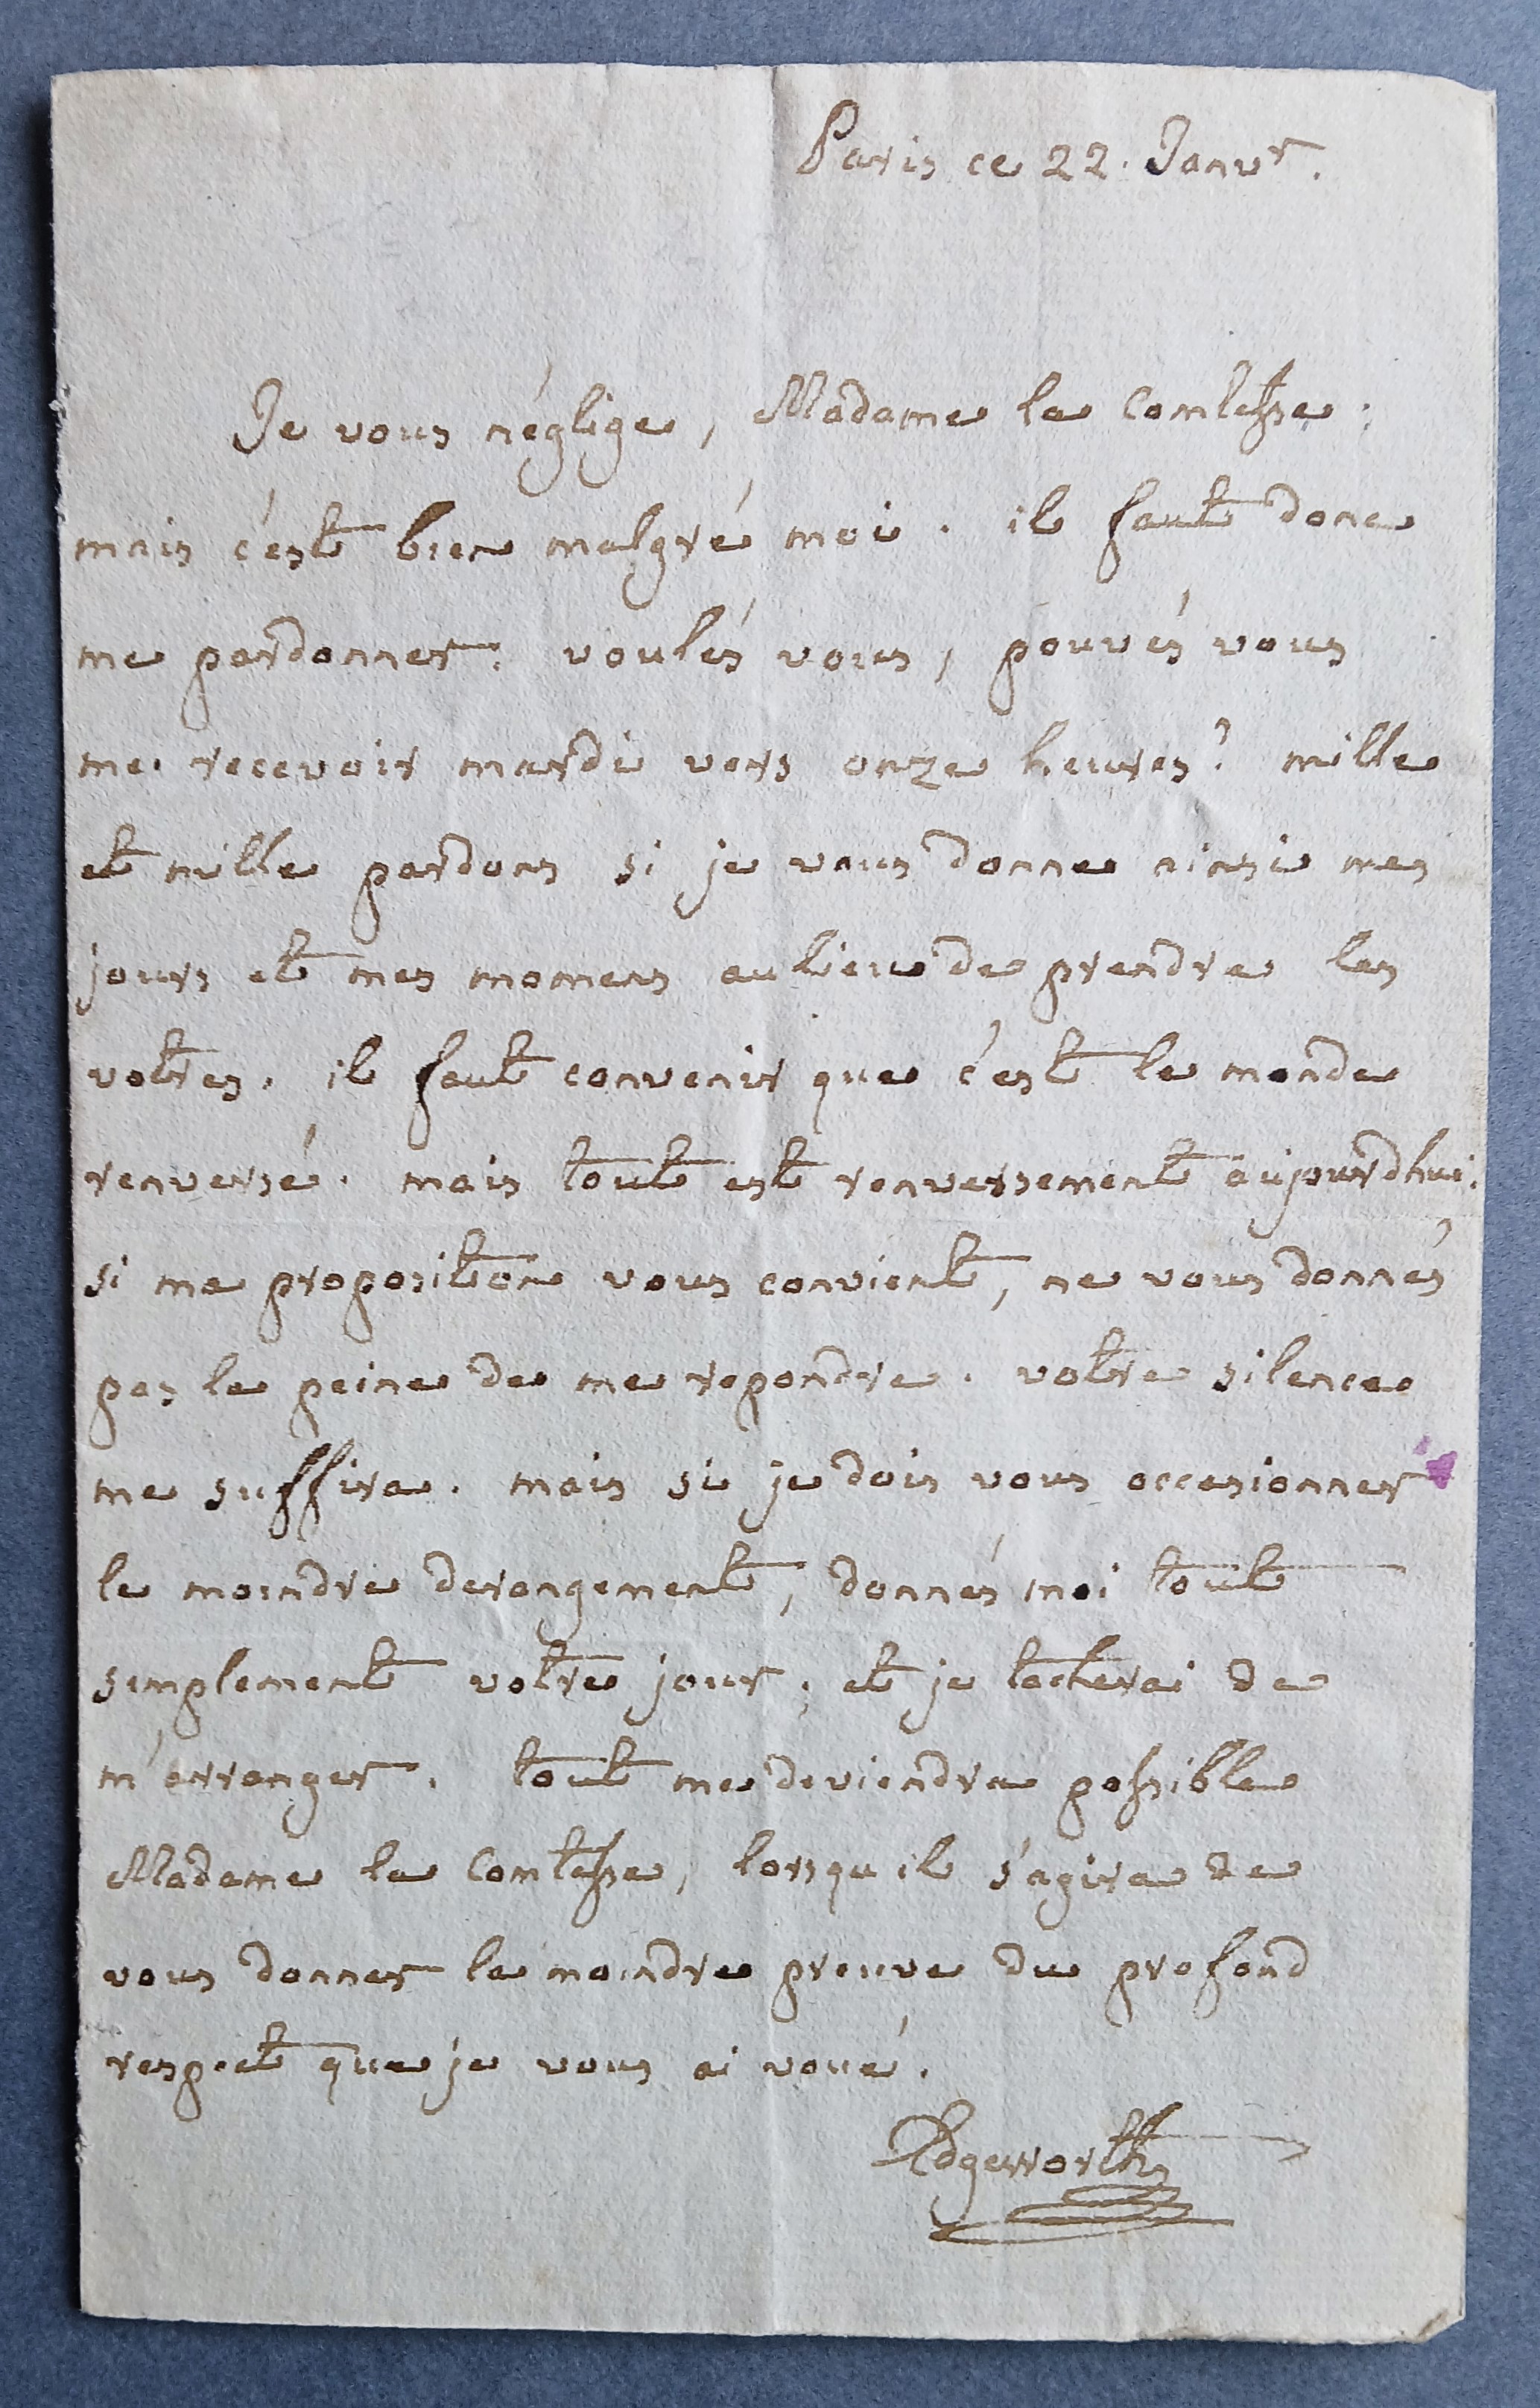 Paris ce 22. Janvr.
Je vous néglige, Madame la Comtesse;
mais c'est bien malgré moi. il faut donc
me pardonner. voulés vous, pouvés vous
me recevoir mardi vers onze heures? mille
et mille pardons si je vous donne ainsi mes
jours et mes momens au lieu de prendre les
votres. il faut convenir que c'est le monde
renversé. mais tout est renversement aujourdhui.
si ma proposition vous convient, ne vous donnés
pas la peine de me repondre. votre silence
me suffira. mais si je dois vous occasionner
le moindre derangement, donnés moi tout
simplement votre jour; et je tacherai de
m'arranger. tout me deviendra possible
Madame la Comtesse, lorsqu il s'agira de
vous donner la moindre preuve du profond
respect que je vous ai voué.
Edgeworth